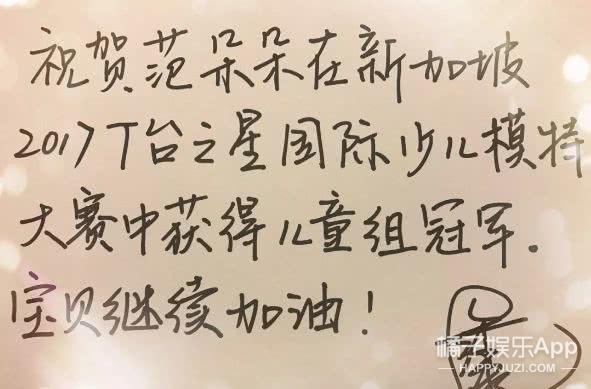 祝贺范朵朵在新加坡
2017T台之星国际少儿模特
大赛中获得儿童组冠军.
宝贝继续加油!
橘子娱乐App
HAPPYJUZI.COM